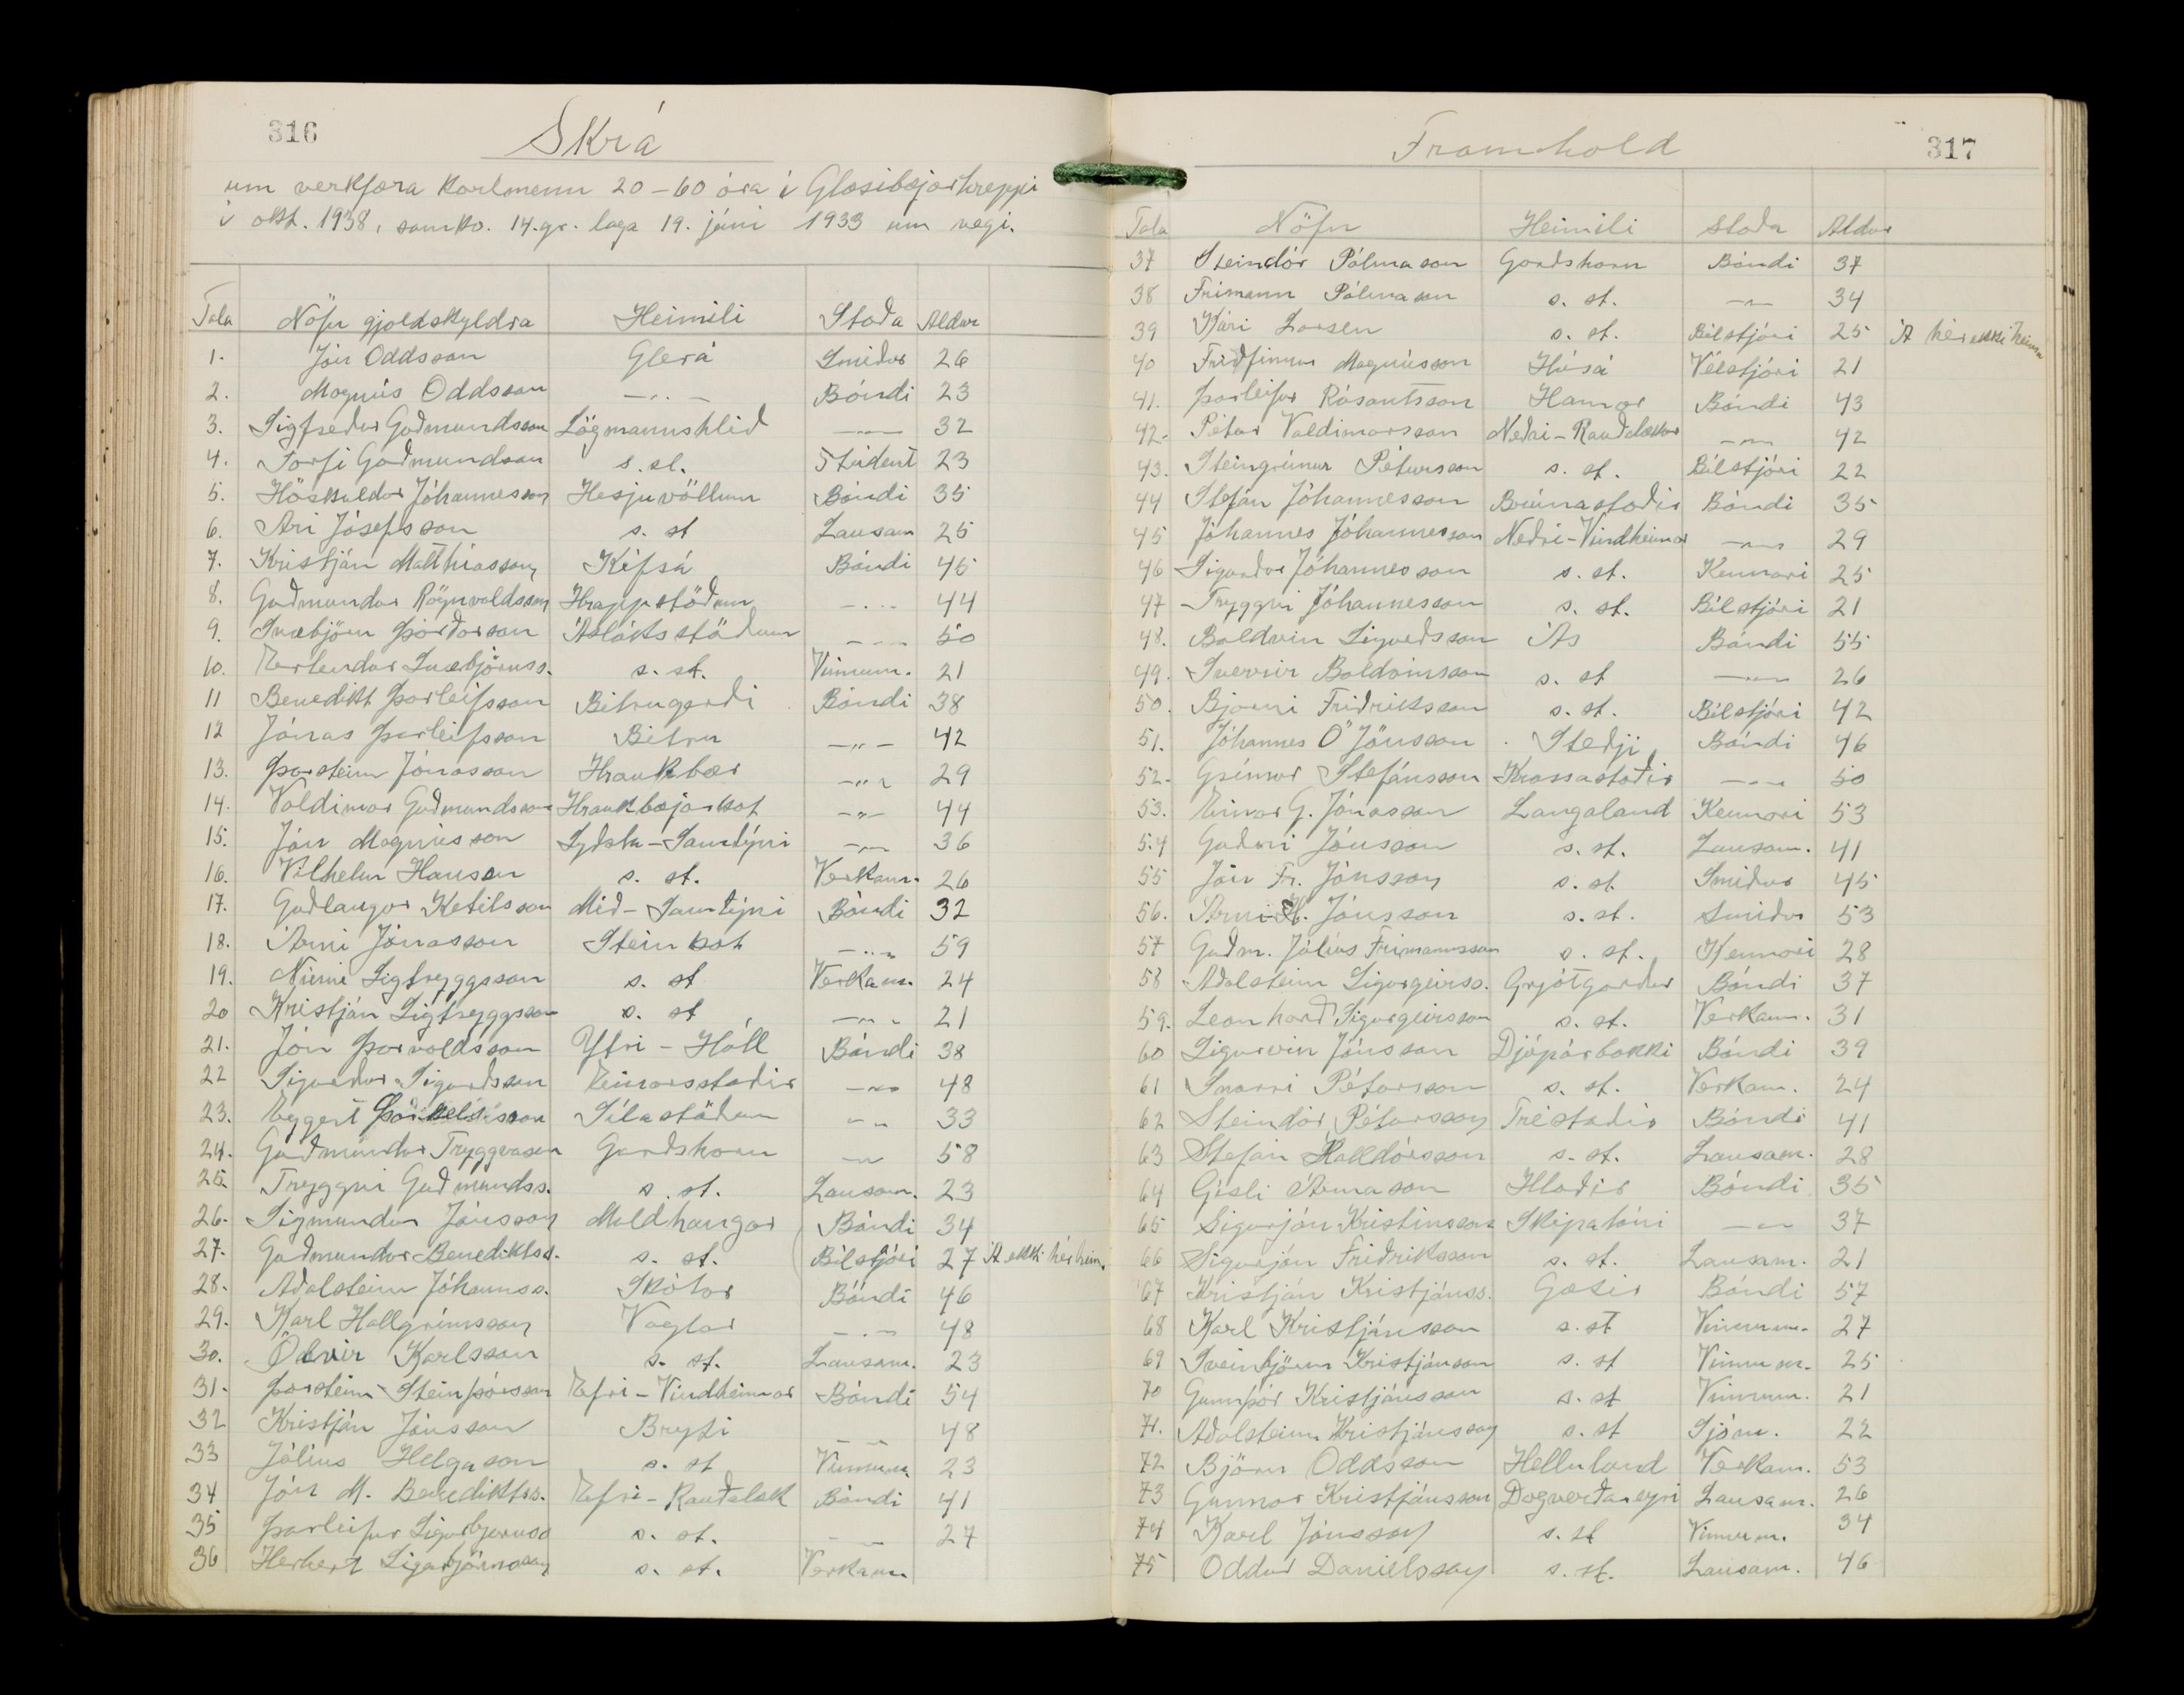 316
Skrá
um verkfæra karlmenn 20-60 ára í Glæsibæjarhreppi
í okt. 1938, samkv. 14. gr. laga 19. júni 1933 um vegi.
Tala Nöfn gjaldskyldra Heimili Staða Aldur
1. Jón Oddsson Glerá Smiður 26
2. Magnús Oddsson —"— Bóndi 23
3. Sigfreður Guðmundsson Lögmannshlíð —"— 32
4. Torfi Guðmundson s. st. Stúdent 23
5. Höskuldur Jóhannesson Hesjuvöllum Bóndi 35
6. Ari Jósefsson s. st Lausam 25
7. Kristján Matthíasson Kífsá Bóndi 45
8. Guðmundur Rögnvaldsson Hrappstöðum —"— 44
9. Snæbjörn Þórðarson Ásláksstöðum —"— 50
10. Erlendur Snæbjörnss. s. st. Vinnum. 21
11 Benedikt Þorleifsson Bitrugerði Bóndi 38
12 Jónas Þorleifsson Bitru —"— 42
13. Þorsteinn Jónasson Hraukbær —"— 29
14. Valdimar Guðmundsson Hraukbæjarkot —"— 44
15. Jón Magnússon Syðstu-Samtýni —"— 36
16. Vilhelm Hansen s. st. Verkam. 26
17. Guðlaugur Ketilsson Mið-Samtýni Bóndi 32
18. Árni Jónasson Steinkot —"— 59
19. Númi Sigtryggsson s. st Verkam. 24
20 Kristján Sigtryggsson s. st —"— 21
21. Jón Þorvaldsson Ytri-Hóll Bóndi 38
22 Sigurður Sigurðsson Einarsstaðir —"— 48
23. Eggert Þorkelsson Sílastöðum —"— 33
24. Guðmundur Tryggvason Garðshorn —"— 58
25. Tryggvi Guðmundss. s. st. Lausam. 23
26. Sigmundur Jónsson Moldhaugar Bóndi 34
27. Guðmundur Benediktss. s. st. Bílstjóri 27 Á ekki hér heim.
28. Aðalsteinn Jóhannss. Skútar Bóndi 46
29. Karl Hallgrímsson Vaglar —"— 48
30. Ölvir Karlsson s. st. Lausam. 23
31. Þorsteinn Steinþórsson Efri-Vindheimar Bóndi 54
32 Kristján Jónsson Bryti —"— 48
33 Júlíus Helgason s. st Vinnum. 23
34 Jón M. Benediktss. Efri-Rauðalæk Bóndi 41
35 Þorleifur Sigurbjörnss s. st. —"— 27
36 Herbert Sigurbjörnsson s. st. Verkam.
Framhald
317
Tala Nöfn Heimili Staða Aldur
37 Steindór Pálmason Garðshorn Bóndi 37
38 Frímann Pálmason s. st. —"— 34
39 Kári Larsen s. st. Bílstjóri 25 Á hér ekki heima
40 Friðfinnur Magnússon Hásá Vélstjóri 21
41. Þorleifur Rósantsson Hamar Bóndi 43
42. Pétur Valdimarsson Neðri-Rauðalækur —"— 42
43. Steingrímur Pétursson s. st. Bílstjóri 22
44 Stefán Jóhannesson Brúnastaðir Bóndi 35
45 Jóhannes Jóhannesson Neðri-Vindheimar —"— 29
46 Sigurður Jóhannesson s. st. Kennari 25
47 Tryggvi Jóhannesson s. st. Bílstjóri 21
48. Baldvin Sigurðsson Ás Bóndi 55
49. Sverrir Baldvinsson s. st —"— 26
50. Bjarni Friðriksson s. st. Bílstjóri 42
51. Jóhannes Ó Jónsson Steðji Bóndi 46
52. Grímur Stefánsson Krossastaðir —"— 50
53. Einar G. Jónasson Laugaland Kennari 53
54 Guðni Jónsson s. st. Lausam. 41
55 Jón Fr. Jónsson s. st. Smiður 45
56. Árni H. Jónsson s. st. Smiður 53
57 Guðm. Júlíus Frímannsson s. st. Kennari 28
58 Aðalsteinn Sigurgeirss. Grjótgarður Bóndi 37
59. Leonharð Sigurgeirsson s. st. Verkam. 31
60 Sigurvin Jónsson Djúpárbakki Bóndi 39
61 Snorri Pétursson s. st. Verkam. 24
62 Steindór Pétursson Tréstaðir Bóndi 41
63 Stefán Halldórsson s. st. Lausam. 28
64 Gísli Árnason Hlaðir Bóndi 35
65 Sigurjón Kristinsson Skipalóni —"— 37
66 Sigurjón Friðriksson s. st. Lausam. 21
67 Kristján Kristjánss. Gæsir Bóndi 57
68 Karl Kristjánsson s. st Vinnum. 27
69 Sveinbjörn Kristjánson s. st Vinnum. 25
70 Gunnþór Kristjánsson s. st Vinnum. 21
71. Aðalsteinn Kristjánsson s. st Sjóm. 22
72 Björn Oddsson Helluland Verkam. 53
73 Gunnar Kristjánsson Dagverðareyri Lausam. 26
74 Karl Jónsson s. st Vinnum. 34
75 Oddur Daníelsson s. st. Lausam. 46